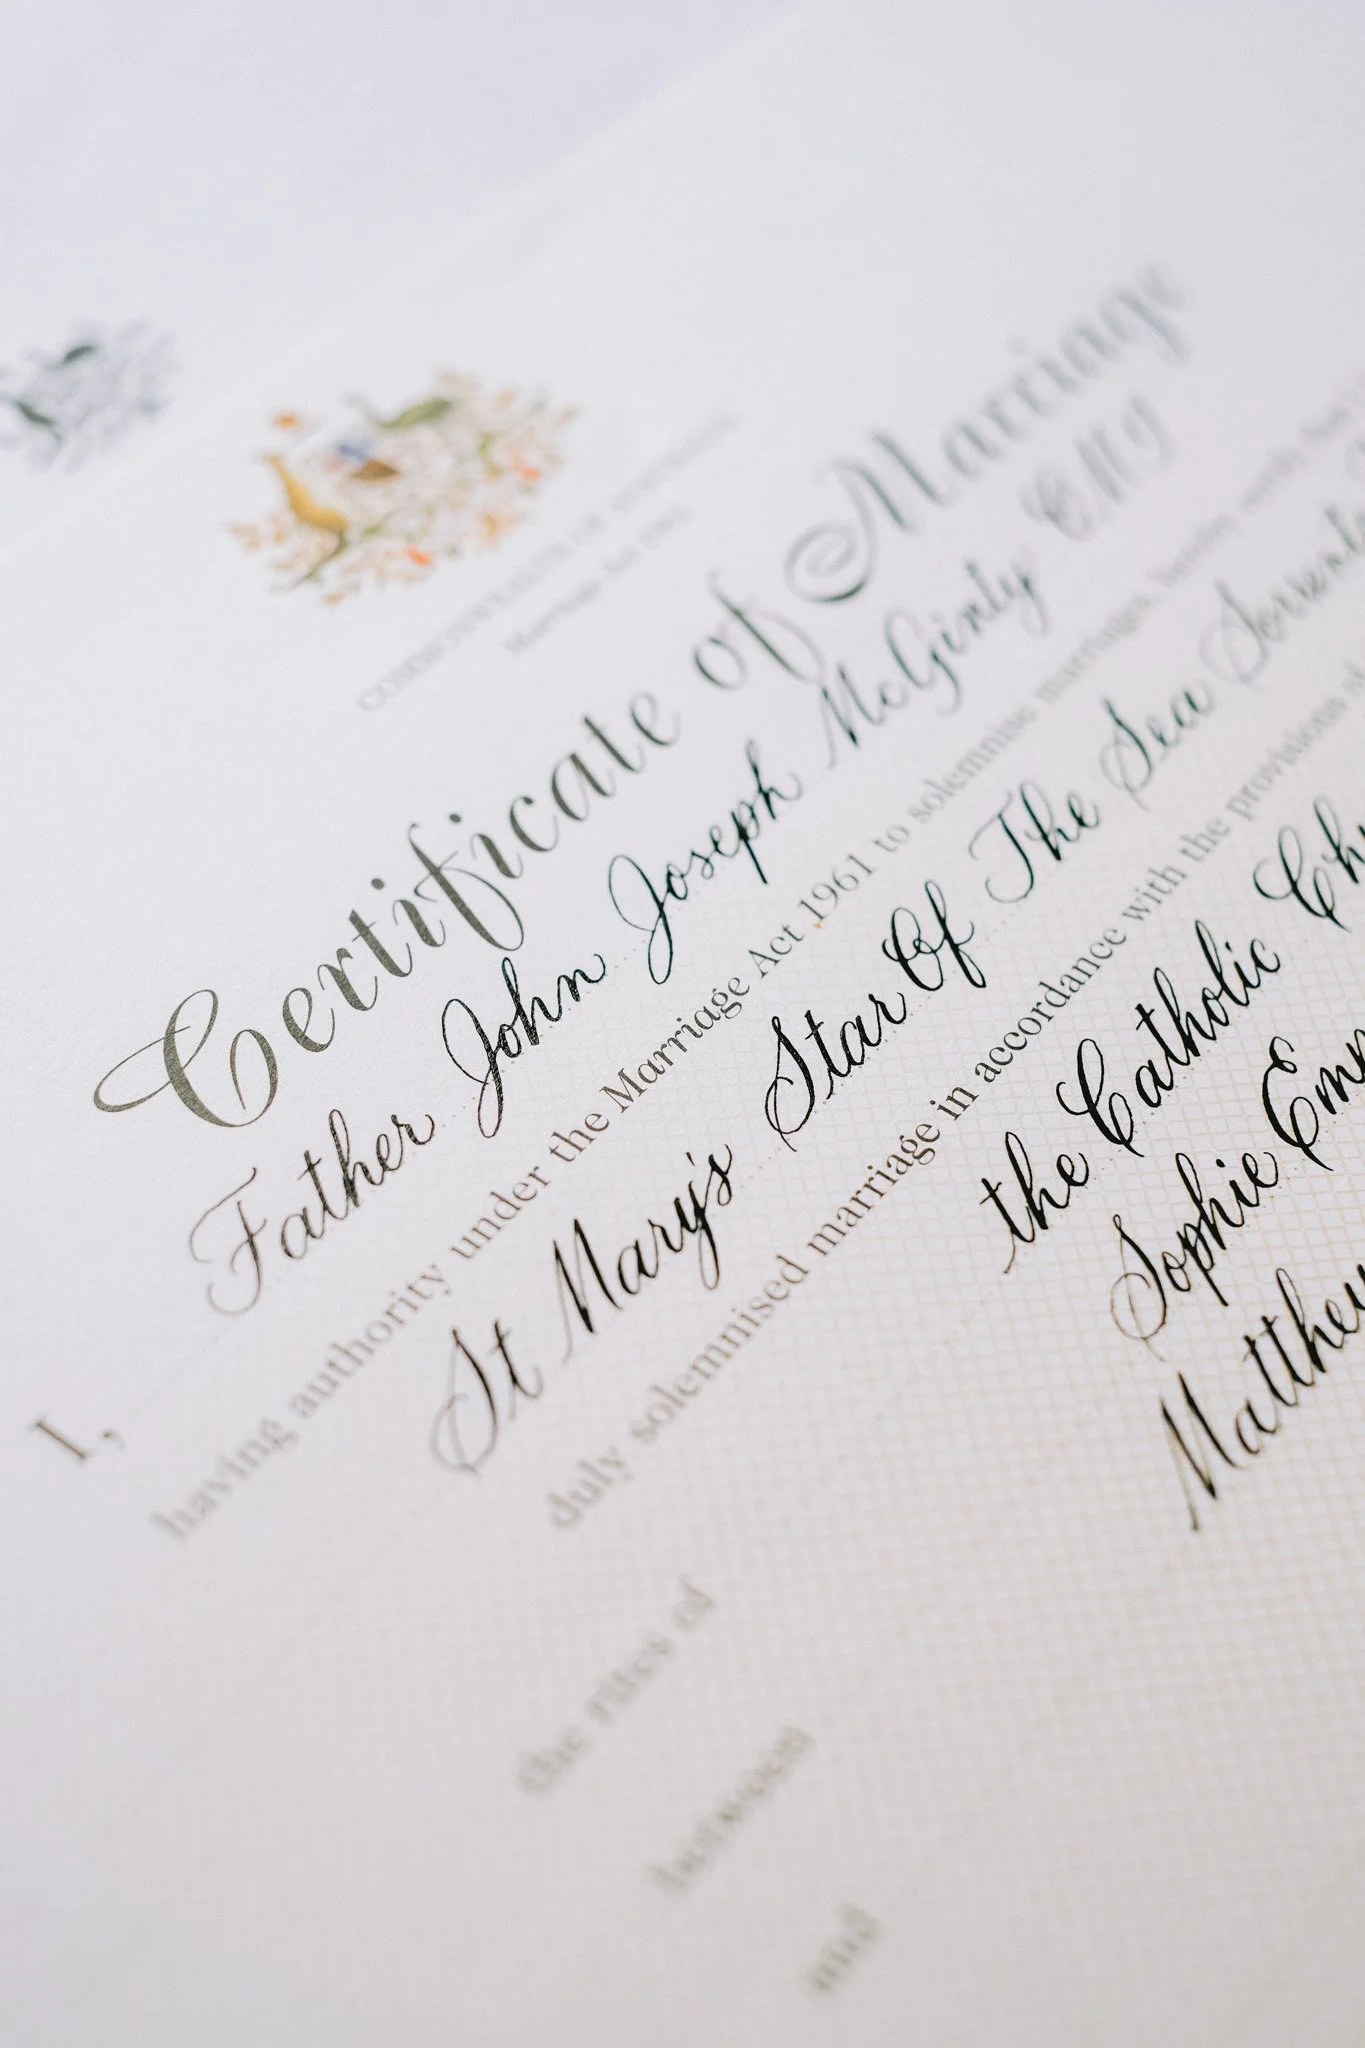 COMMONWEALTH OF AUSTRALIA
Marriage Act 1961
Certificate of Marriage
I, Father John Joseph McGinty CMI
having authority under the Marriage Act 1961 to solemnise marriages, hereby certify
St Mary's Star Of The Sea Sorrento
duly solemnised marriage in accordance with the provisions of
the rites of the Catholic
between Sophie
and Matthew